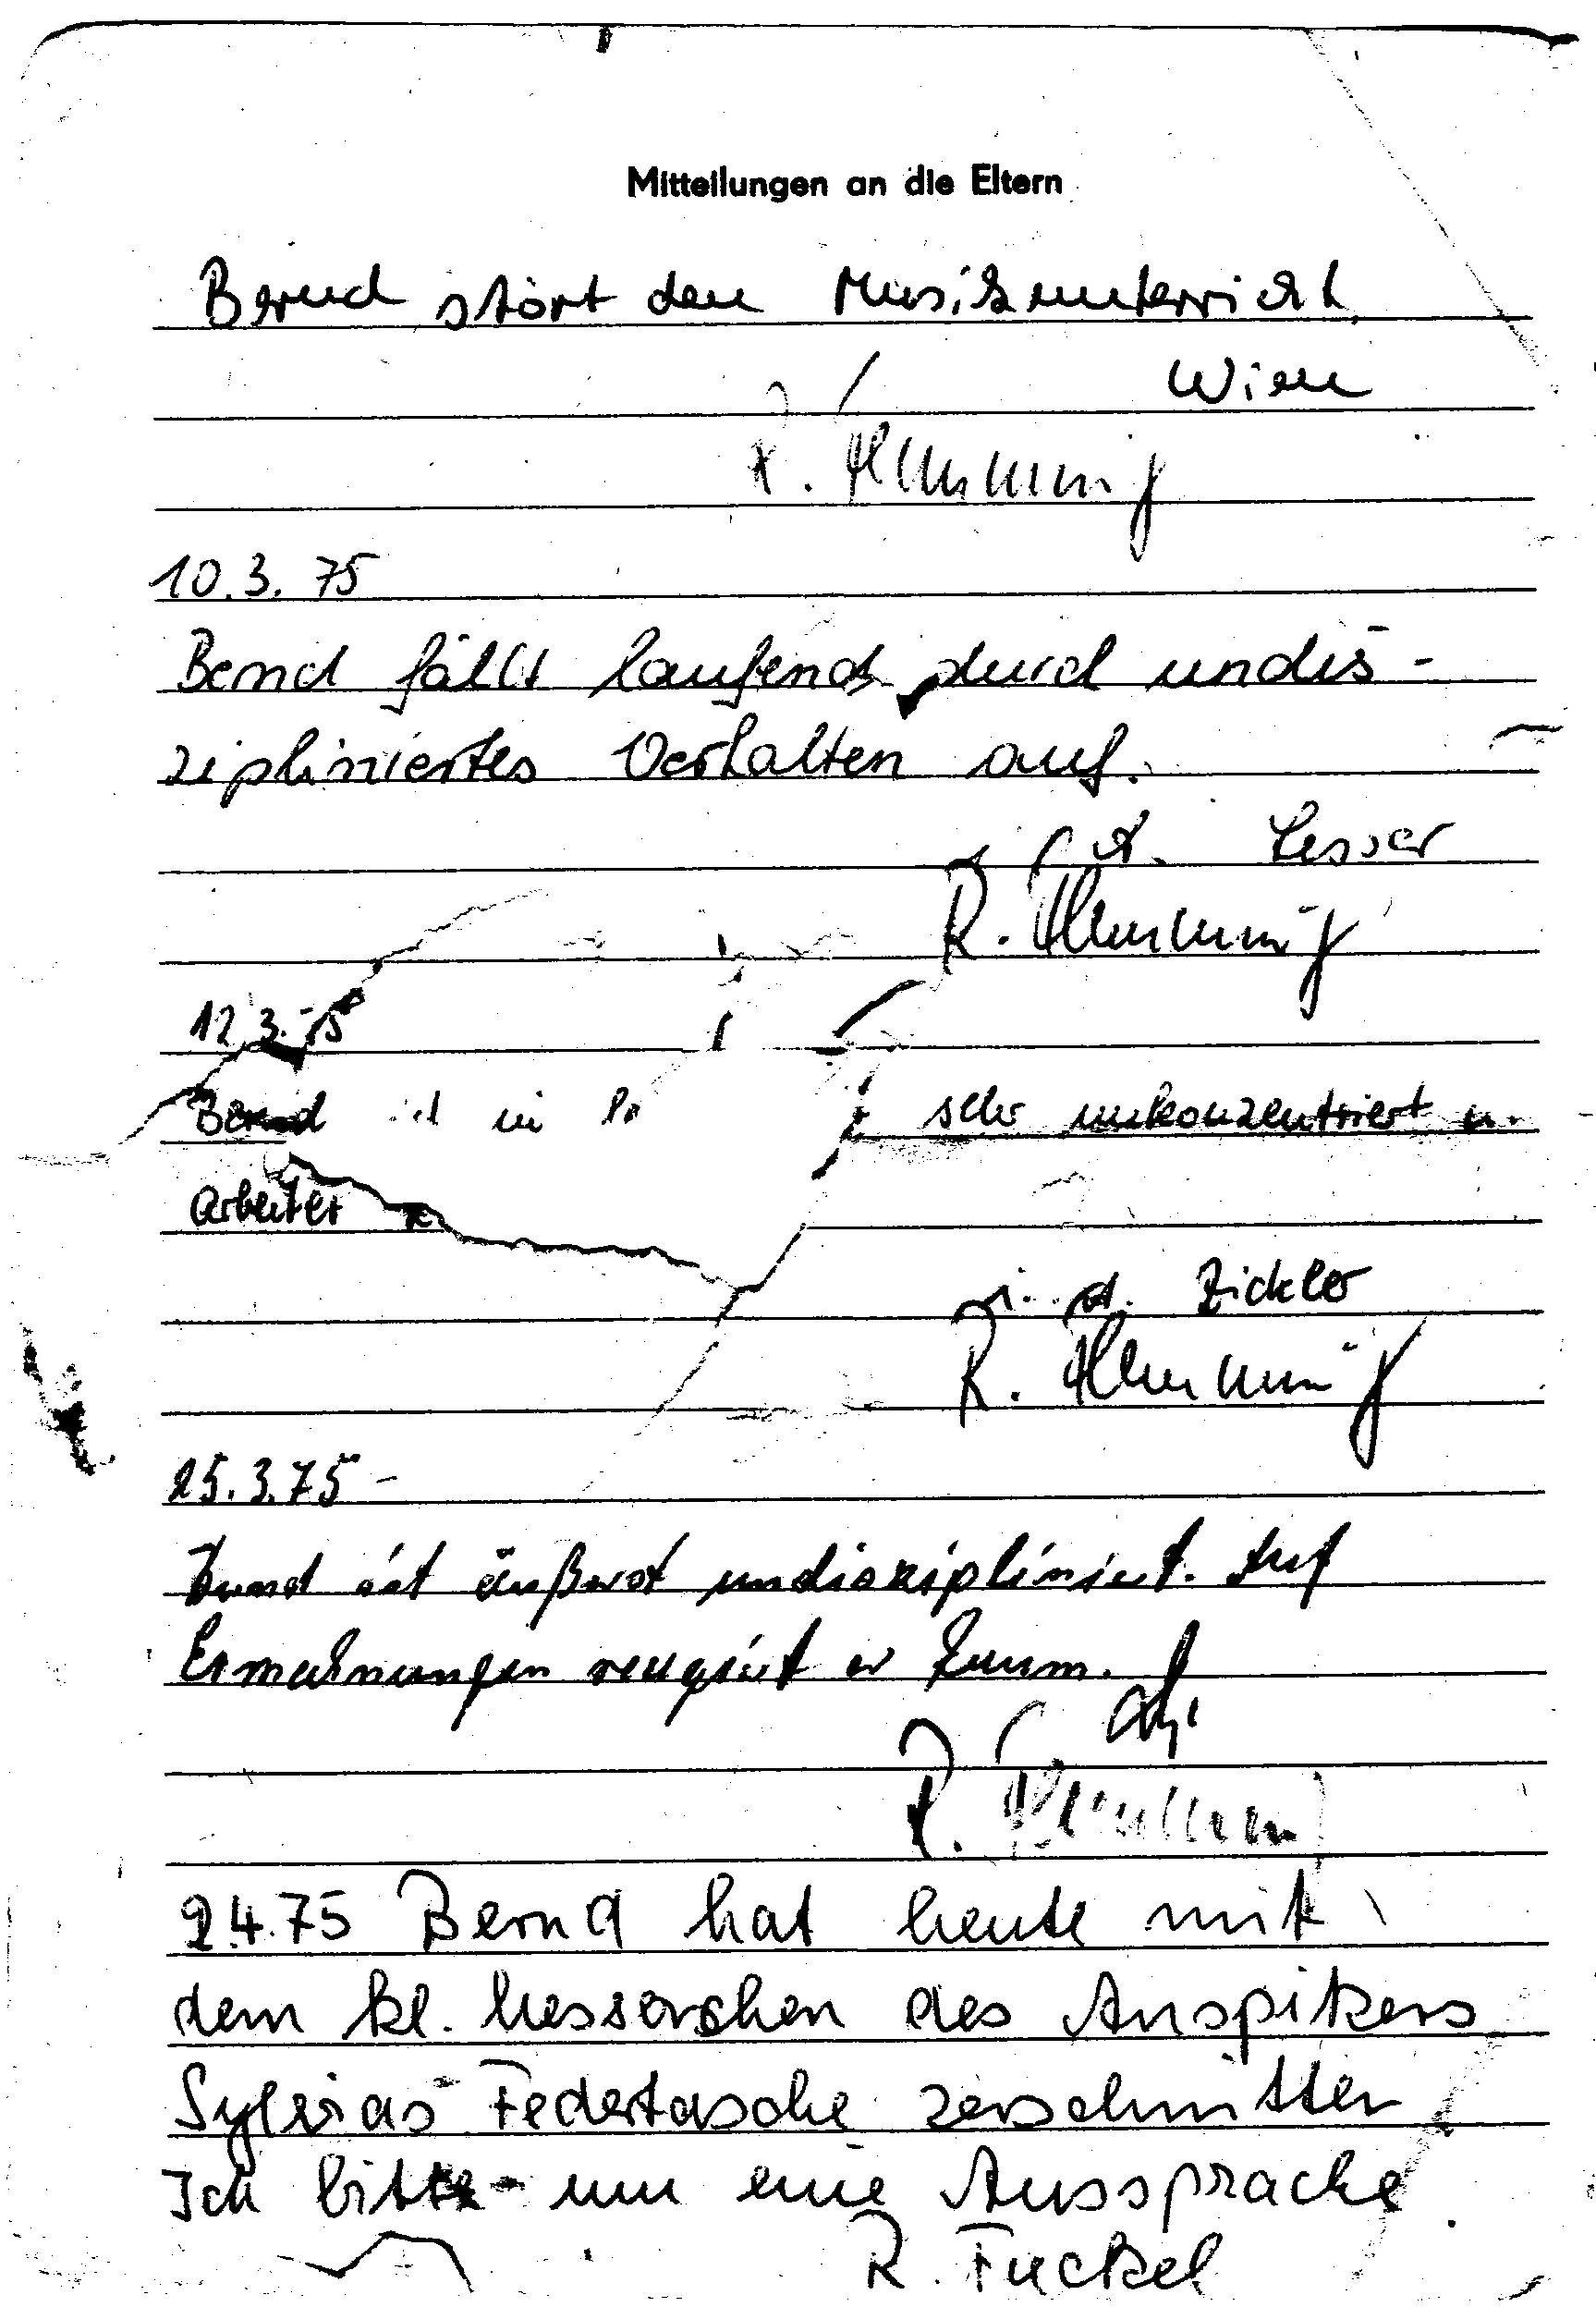 Mitteilungen an die Eltern
Bernd stört den Musikunterricht.
Wien
R.
10.3.75
Bernd fällt laufend durch undis-
zipliniertes Verhalten auf.
A. Lesser
R.
12.3.75
Bernd ist in sehr unkonzentriert u.
arbeitet
Zickler
R.
25.3.75
Bernd ist äußerst undiszipliniert. Auf
Ermahnungen reagiert er kaum.
R.
2.4.75 Bernd hat heute mit
dem kl. Messerchen des Anspitzers
Sylvias Federtasche zerschnitten
Ich bitte um eine Aussprache.
R. Fuckel